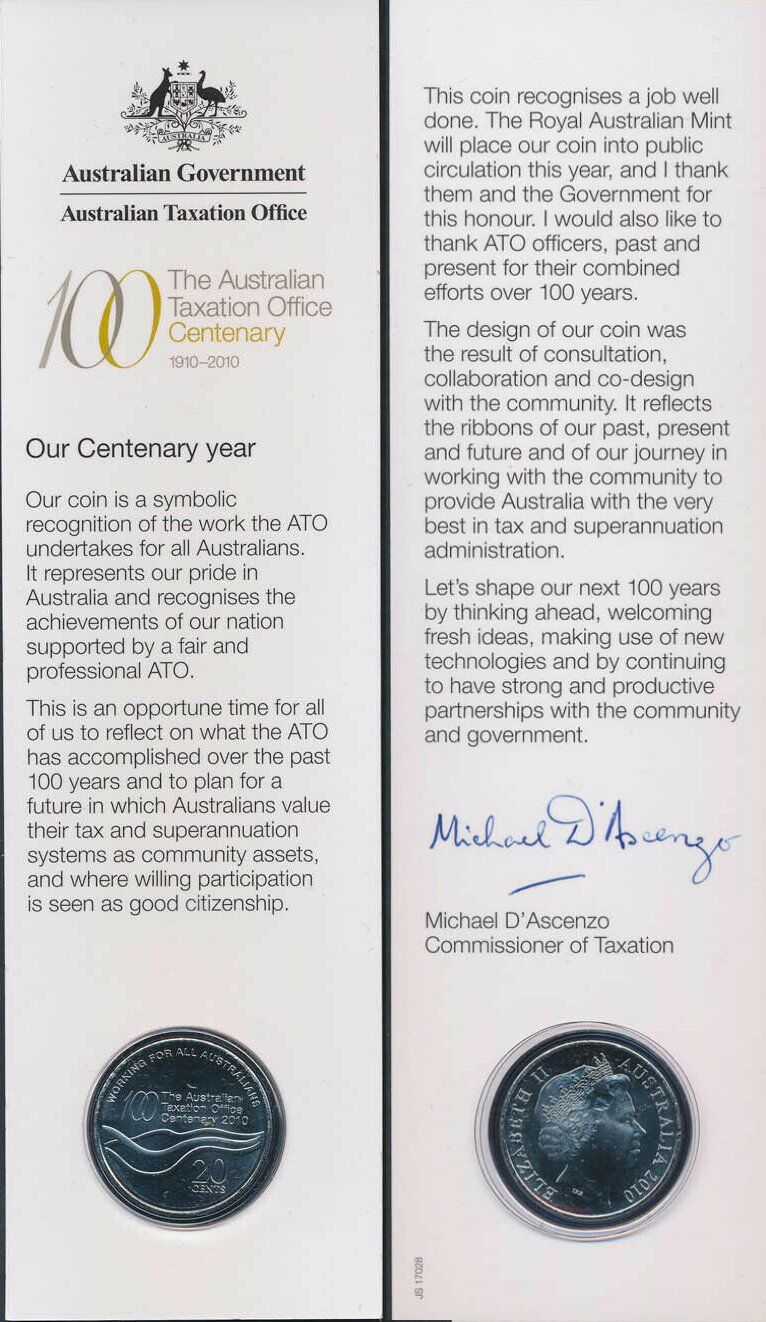 AUSTRALIA
Australian Government
Australian Taxation Office
100
The Australian
Taxation Office
Centenary
1910–2010
Our Centenary year
Our coin is a symbolic
recognition of the work the ATO
undertakes for all Australians.
It represents our pride in
Australia and recognises the
achievements of our nation
supported by a fair and
professional ATO.
This is an opportune time for all
of us to reflect on what the ATO
has accomplished over the past
100 years and to plan for a
future in which Australians value
their tax and superannuation
systems as community assets,
and where willing participation
is seen as good citizenship.
WORKING FOR ALL AUSTRALIANS
100
The Australian
Taxation Office
Centenary 2010
20
CENTS
This coin recognises a job well
done. The Royal Australian Mint
will place our coin into public
circulation this year, and I thank
them and the Government for
this honour. I would also like to
thank ATO officers, past and
present for their combined
efforts over 100 years.
The design of our coin was
the result of consultation,
collaboration and co-design
with the community. It reflects
the ribbons of our past, present
and future and of our journey in
working with the community to
provide Australia with the very
best in tax and superannuation
administration.
Let's shape our next 100 years
by thinking ahead, welcoming
fresh ideas, making use of new
technologies and by continuing
to have strong and productive
partnerships with the community
and government.
Michael D'Ascenzo
Michael D'Ascenzo
Commissioner of Taxation
ELIZABETH II AUSTRALIA 2010
IRB
JS 17028